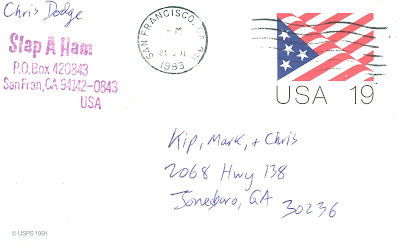 Chris Dodge
Slap A Ham
P.O. Box 420843
San Fran, CA 94142-0843
USA
SAN FRANCISCO, CA
PM
1993
USA 19
Kip, Mark, + Chris
2068 Hwy 138
Jonesboro, GA
30236
© USPS 1991